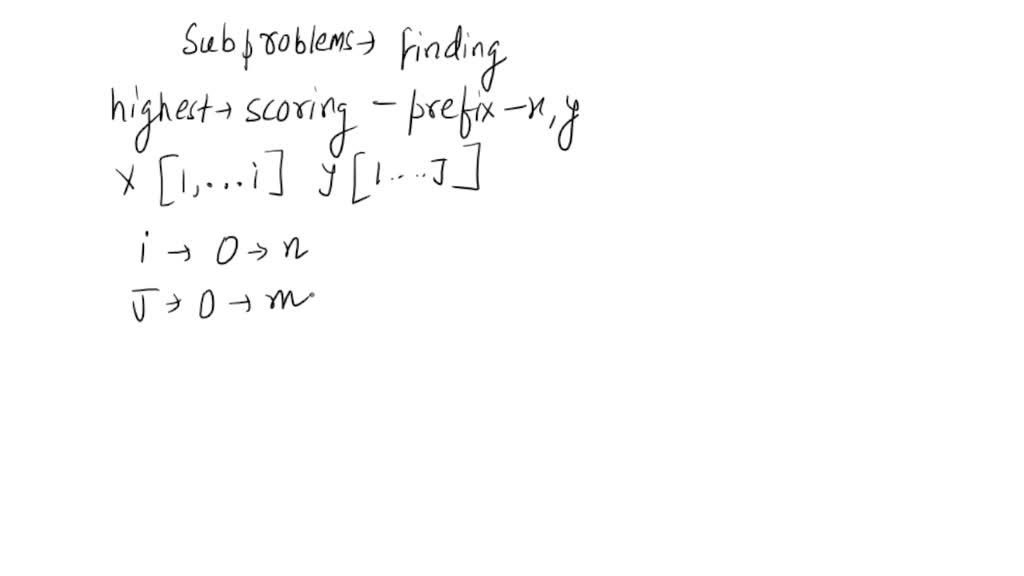 Subproblems → finding
highest → scoring - prefix - x, y
X [1,...i] Y [1....J]
i → 0 → n
J → 0 → m